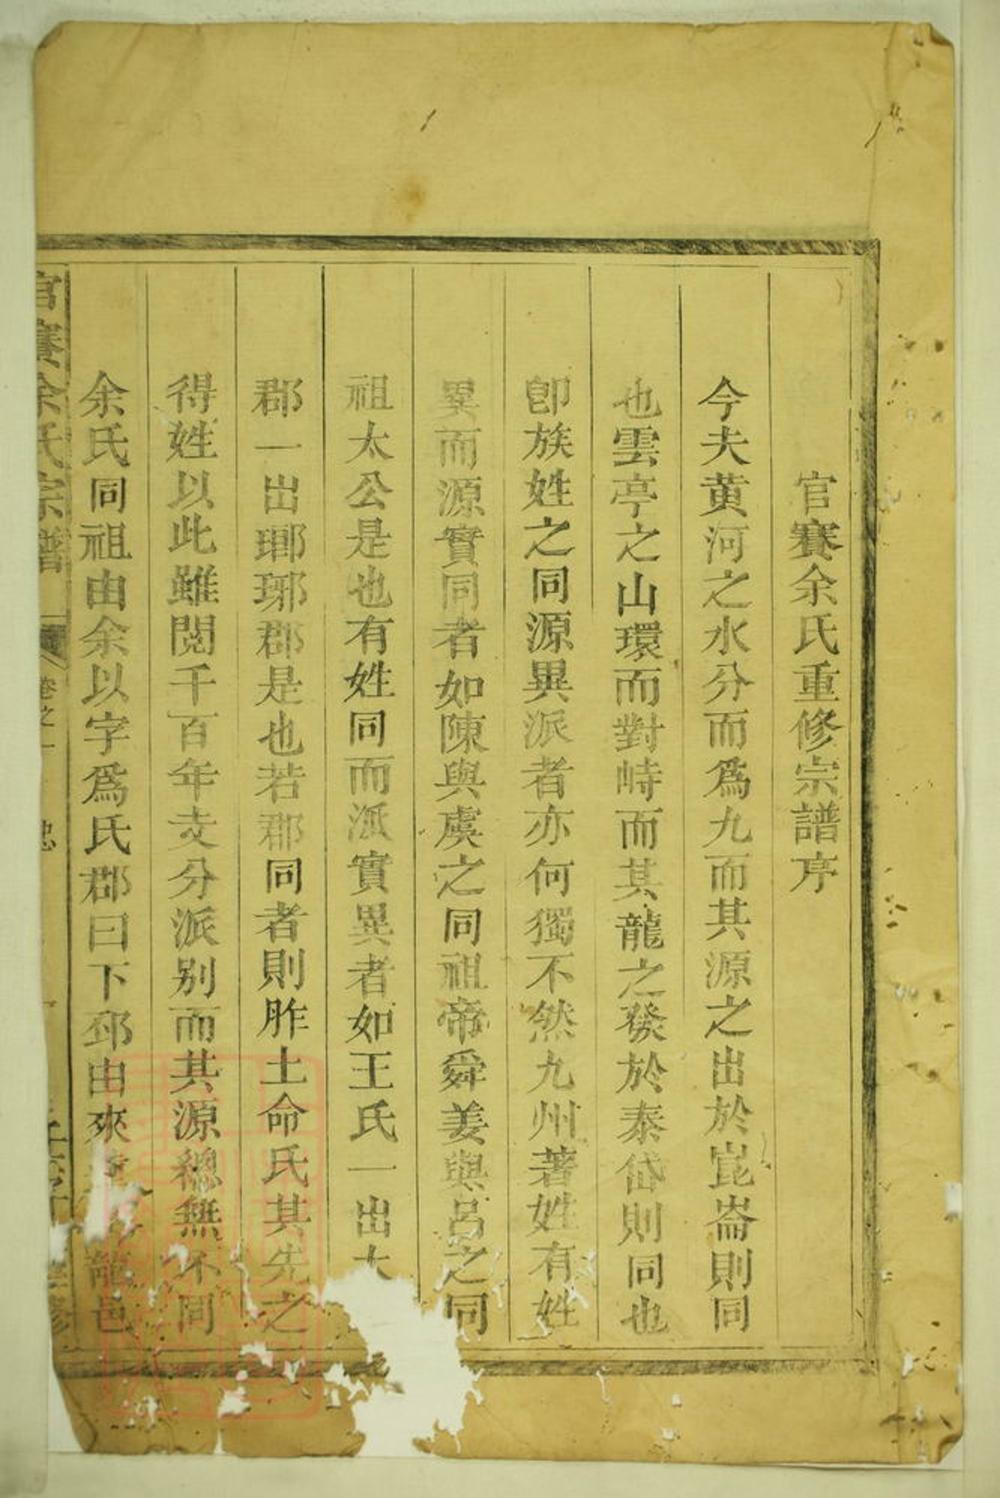 官賽余氏重修宗譜序
今夫黄河之水分而爲九而其源之出於崑崙則同
也雲亭之山環而對峙而其龍之發於泰岱則同也
卽族姓之同源異派者亦何獨不然九州著姓有姓
異而源實同者如陳與虞之同祖帝舜姜與呂之同
祖太公是也有姓同而派實異者如王氏一出太
郡一出瑯琊郡是也若郡同者則胙土命氏其先之
得姓以此雖閱千百年支分派别而其源總無不同
余氏同祖由余以字爲氏郡曰下邳由來 龍邑
官賽余氏宗譜 卷之一